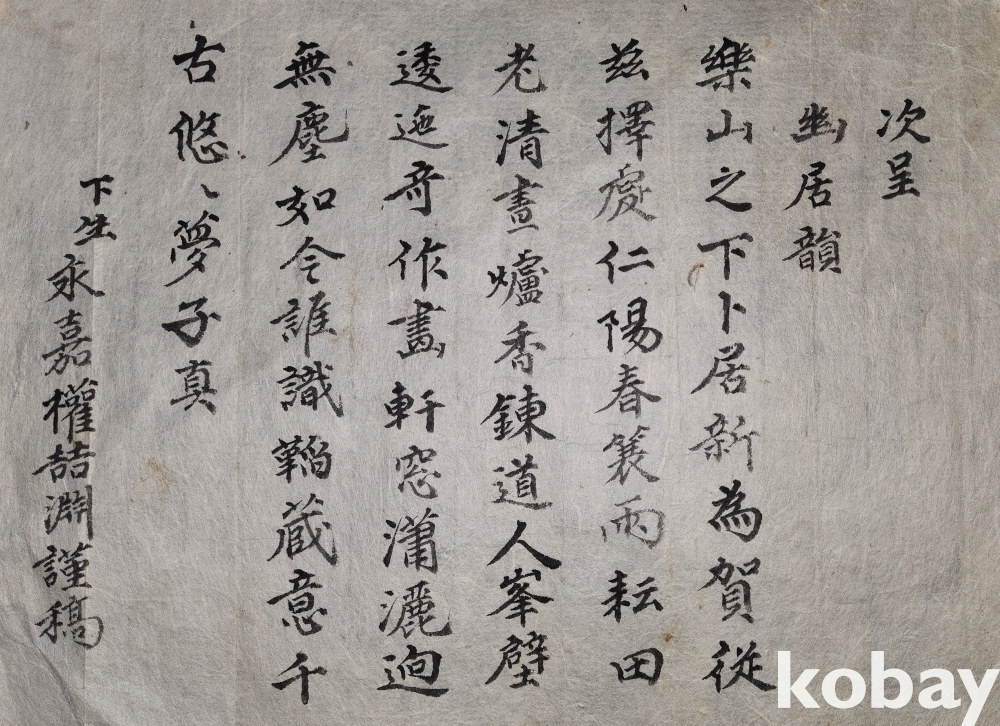 次呈
幽居韻
樂山之下卜居新為賀從
玆擇處仁陽春簑雨耘田
老清晝爐香鍊道人峯壁
逶迤奇作畵軒窓瀟灑逈
無塵如今誰識韜藏意千
古悠〻夢子真
下生永嘉權喆淵謹稿
kobay